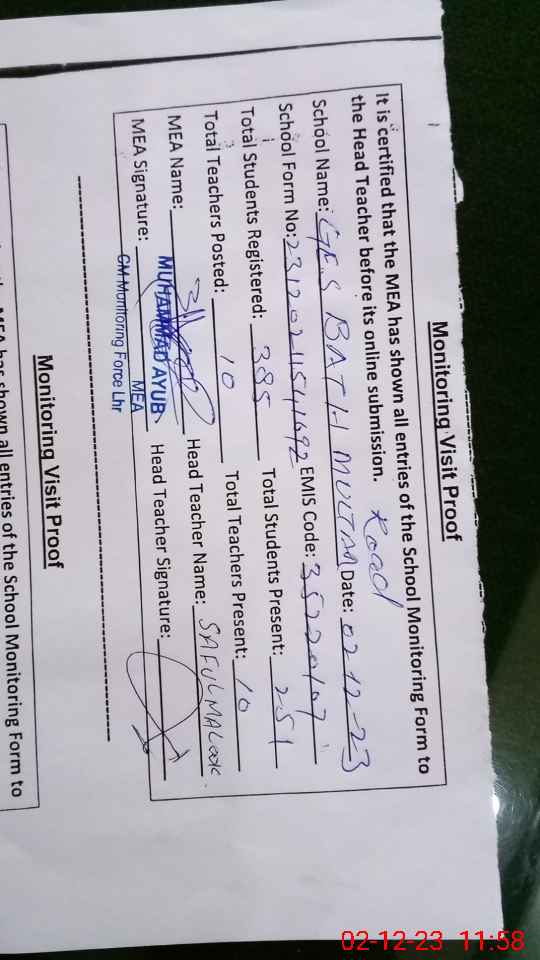 Monitoring Visit Proof
It is certified that the MEA has shown all entries of the School Monitoring Form to
the Head Teacher before its online submission. Road
School Name: GES BATH MULTAN Date: 02-12-23
School Form No: EMIS Code: 35220107
Total Students Registered: 385 Total Students Present: 251
Total Teachers Posted: 10 Total Teachers Present: 10
MEA Name: Head Teacher Name: SAFULMALOOK
MUHAMMAD AYUB
MEA Signature: Head Teacher Signature:
MEA
CM Monitoring Force Lhr
Monitoring Visit Proof
MEA has shown all entries of the School Monitoring Form to
02-12-23 11:58